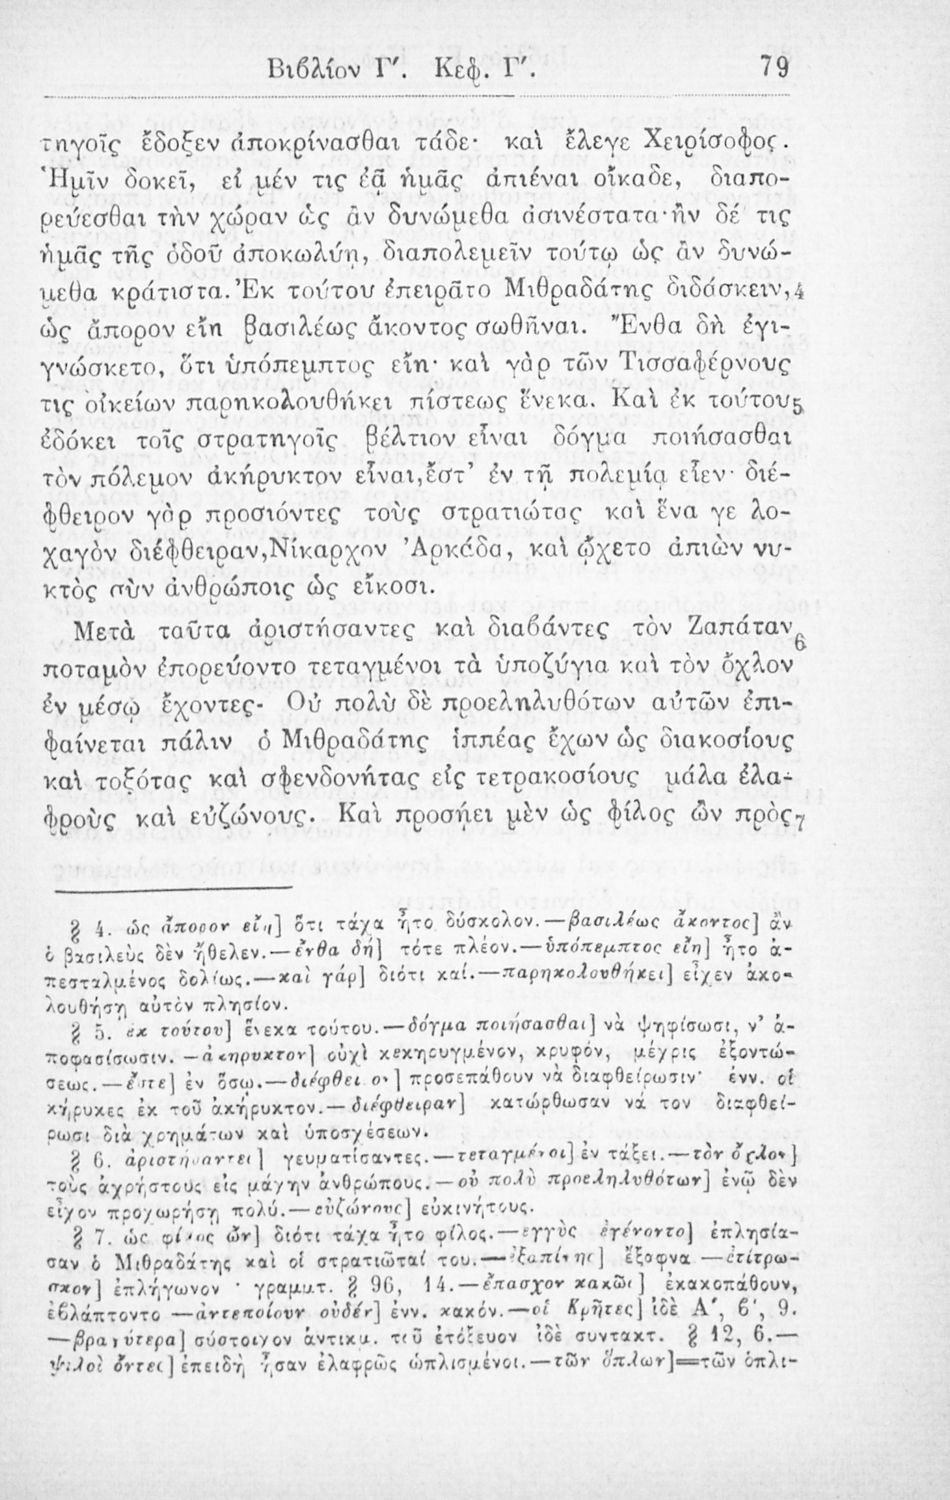 Βιβλίον Γ′. Κεφ. Γ′. 79
τηγοῖς ἔδοξεν ἀποκρίνασθαι τάδε· καὶ ἔλεγε Χειρίσοφος.
Ἡμῖν δοκεῖ, εἰ μέν τις ἐᾷ ἡμᾶς ἀπιέναι οἴκαδε, διαπο-
ρεύεσθαι τὴν χώραν ὡς ἂν δυνώμεθα ἀσινέστατα· ἢν δέ τις
ἡμᾶς τῆς ὁδοῦ ἀποκωλύῃ, διαπολεμεῖν τούτῳ ὡς ἂν δυνώ-
μεθα κράτιστα. Ἐκ τούτου ἐπειρᾶτο Μιθραδάτης διδάσκειν, 4
ὡς ἄπορον εἴη βασιλέως ἄκοντος σωθῆναι. Ἔνθα δὴ ἐγι-
γνώσκετο, ὅτι ὑπόπεμπτος εἴη· καὶ γὰρ τῶν Τισσαφέρνους
τις οἰκείων παρηκολουθήκει πίστεως ἕνεκα. Καὶ ἐκ τούτου 5
ἐδόκει τοῖς στρατηγοῖς βέλτιον εἶναι δόγμα ποιήσασθαι
τὸν πόλεμον ἀκήρυκτον εἶναι, ἔστ’ ἐν τῇ πολεμίᾳ εἶεν· διέ-
φθειρον γὰρ προσιόντες τοὺς στρατιώτας καὶ ἕνα γε λο-
χαγὸν διέφθειραν, Νίκαρχον Ἀρκάδα, καὶ ᾤχετο ἀπιὼν νυ-
κτὸς σὺν ἀνθρώποις ὡς εἴκοσι.
Μετὰ ταῦτα ἀριστήσαντες καὶ διαβάντες τὸν Ζαπάταν 6
ποταμὸν ἐπορεύοντο τεταγμένοι τὰ ὑποζύγια καὶ τὸν ὄχλον
ἐν μέσῳ ἔχοντες· Οὐ πολὺ δὲ προεληλυθότων αὐτῶν ἐπι-
φαίνεται πάλιν ὁ Μιθραδάτης ἱππέας ἔχων ὡς διακοσίους
καὶ τοξότας καὶ σφενδονήτας εἰς τετρακοσίους μάλα ἐλα-
φροὺς καὶ εὐζώνους. Καὶ προσῄει μὲν ὡς φίλος ὢν πρὸς 7
§ 4. ὡς ἄπορον εἴη] ὅτι τάχα ἦτο δύσκολον.—βασιλέως ἄκοντος] ἂν
ὁ βασιλεὺς δὲν ἤθελεν.—ἔνθα δή] τότε πλέον.—ὑπόπεμπτος εἴη] ἦτο ἀ-
πεσταλμένος δολίως.—καὶ γάρ] διότι καί.—παρηκολουθήκει] εἶχεν ἀκο-
λουθήσῃ αὐτὸν πλησίον.
§ 5. ἐκ τούτου] ἕνεκα τούτου.—δόγμα ποιήσασθαι] νὰ ψηφίσωσι, ν’ ἀ-
ποφασίσωσιν.—ἀκήρυκτον] οὐχὶ κεκηρυγμένον, κρυφόν, μέχρις ἐξοντώ-
σεως.—ἔστε] ἐν ὅσῳ.—διέφθειρον] προσεπάθουν νὰ διαφθείρωσιν· ἐνν. οἱ
κήρυκες ἐκ τοῦ ἀκήρυκτον.—διέφθειραν] κατώρθωσαν νά τον διαφθεί-
ρωσι διὰ χρημάτων καὶ ὑποσχέσεων.
§ 6. ἀριστήσαντες] γευματίσαντες.—τεταγμένοι] ἐν τάξει.—τὸν ὄχλον]
τοὺς ἀχρήστους εἰς μάχην ἀνθρώπους.—οὐ πολὺ προεληλυθότων] ἐνῷ δὲν
εἶχον προχωρήσῃ πολύ.—εὐζώνους] εὐκινήτους.
§ 7. ὡς φίλος ὤν] διότι τάχα ἦτο φίλος.—ἐγγὺς ἐγένοντο] ἐπλησία-
σαν ὁ Μιθραδάτης καὶ οἱ στρατιῶταί του.—ἐξαπίνης] ἔξαφνα —ἐτίτρω-
σκον] ἐπλήγωνον · γραμμτ. § 96, 14.—ἔπασχον κακῶς] ἐκακοπάθουν,
ἐβλάπτοντο —ἀντεποίουν οὐδέν] ἐνν. κακόν.—οἱ Κρῆτες] ἰδὲ Α′, β′, 9.
—βραχύτερα] σύστοιχον ἀντικμ. τοῦ ἐτόξευον ἰδὲ συντακτ. § 12, 6.—
ψιλοὶ ὄντες] ἐπειδὴ ἦσαν ἐλαφρῶς ὡπλισμένοι.—τῶν ὅπλων]=τῶν ὁπλι-